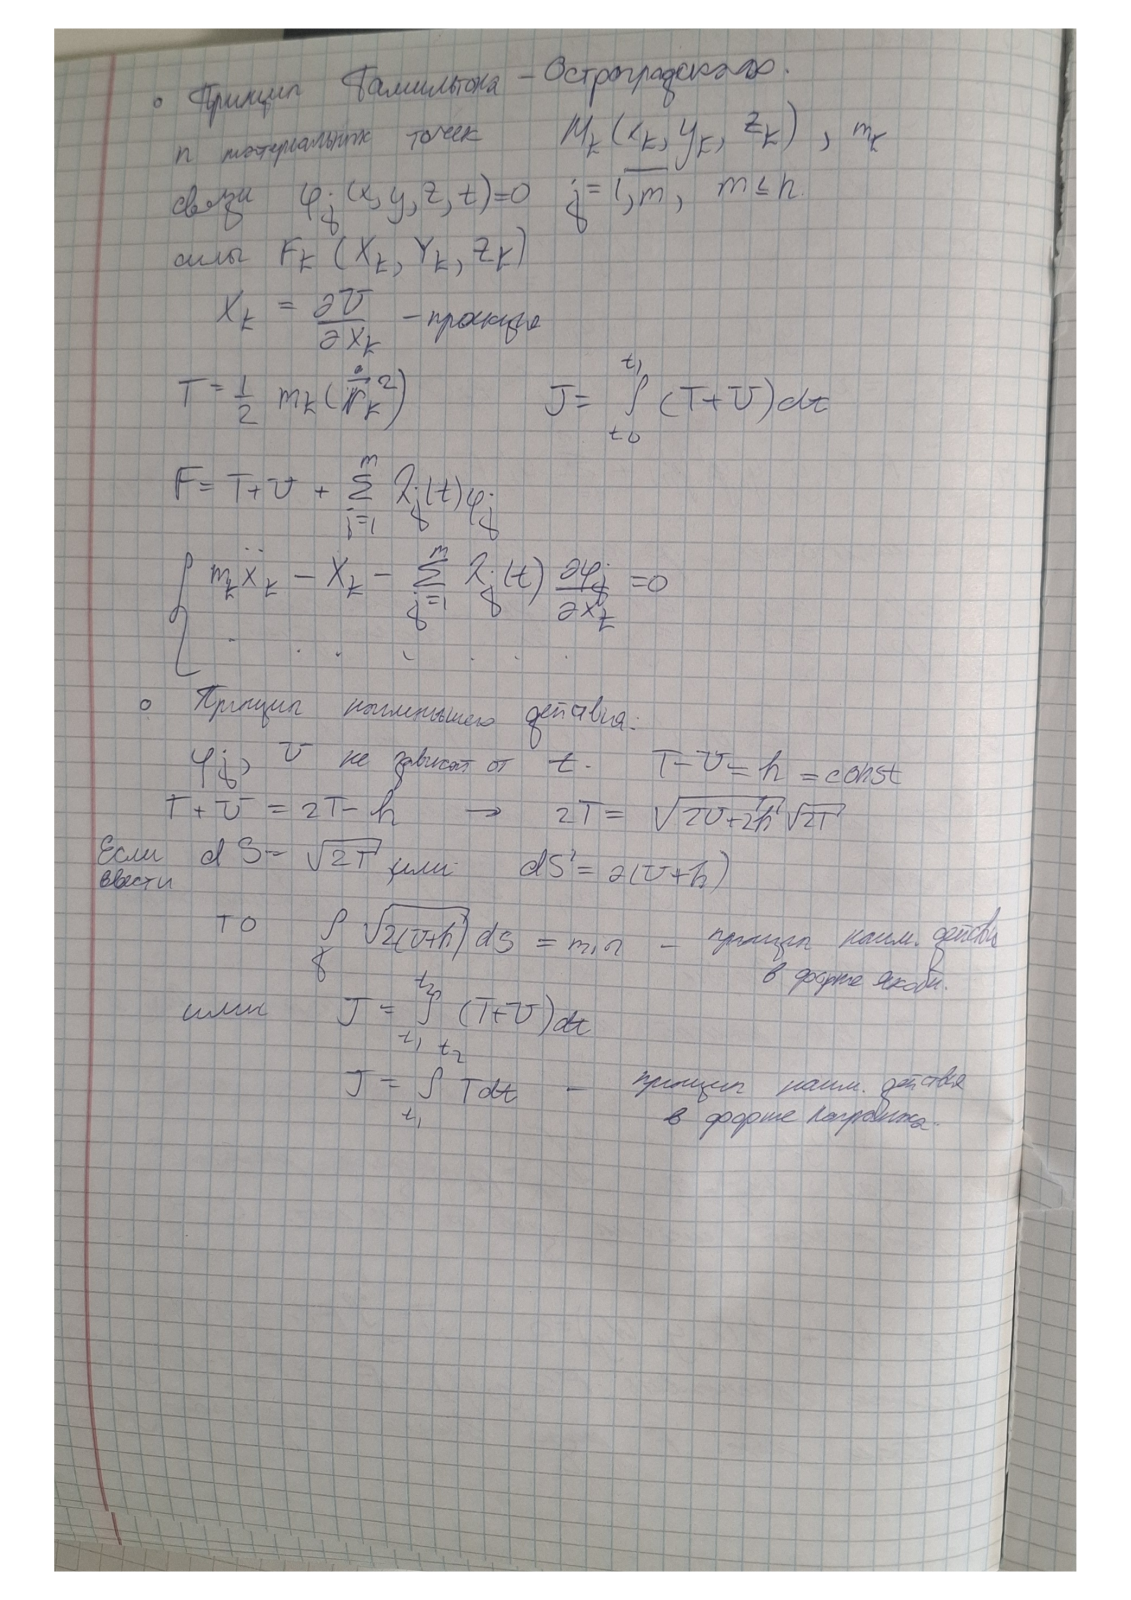 ◦ Принцип Гамильтона – Остроградского.
n материальных точек M_k (x_k, y_k, z_k) , m_k
связи φ_j (x, y, z, t)=0 j = 1,m̅, m ≤ n.
силы F_k (X_k, Y_k, Z_k)
X_k = ∂U/∂x_k – проекция
T = 1/2 m_k (ṙ_k²) J = ∫_{t_0}^{t_1} (T+U)dt
F = T+U + Σ_{j=1}^{m} λ_j(t)φ_j
{ m_k ẍ_k – X_k – Σ_{j=1}^{m} λ_j(t) ∂φ_j/∂x_k = 0
. . . . . . .
◦ Принцип наименьшего действия:
φ_j, U не зависят от t. T – U = h = const
T + U = 2T – h → 2T = √(2U+2h) √(2T)
Если ввести dS = √(2T) или dS' = 2(U+h)
то ∫_γ √(2(U+h)) dS = min – принцип наим. действия
в форме Якоби.
или J = ∫_{t_1}^{t_2} (T+U)dt
J = ∫_{t_1}^{t_2} T dt – принцип наим. действия
в форме Лагранжа.